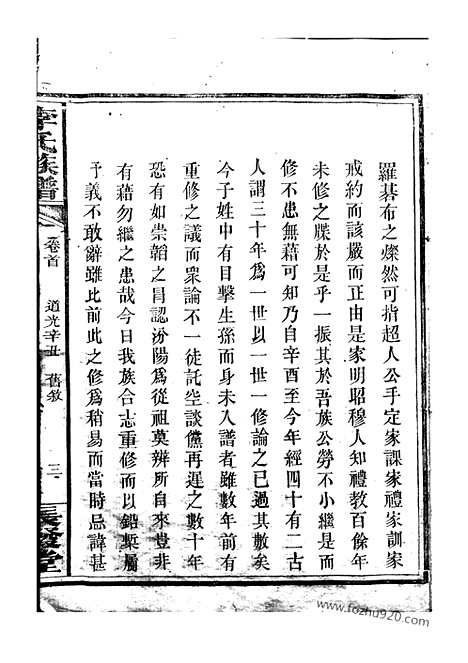 羅碁布之燦然可指超人公手定家課家禮家訓家
戒約而該嚴而正由是家明昭穆人知禮教百餘年
未修之牒於是乎一振其於吾族公勞不小繼是而
修不患無藉可知乃自辛酉至今年經四十有二古
人謂三十年爲一世以一世一修論之已過其數矣
今子姓中有目擊生孫而身未入譜者雖數年前有
重修之議而衆論不一徒託空談儻再遲之數十年
恐有如崇韜之冒認汾陽爲從祖莫辨所自來豈非
有藉勿繼之患哉今日我族合志重修而以鉛槧屬
予義不敢辭雖比前此之修爲稍易而當時忌諱甚
李氏族譜
卷首
道光辛丑
舊敘
三
www.fozhu920.com